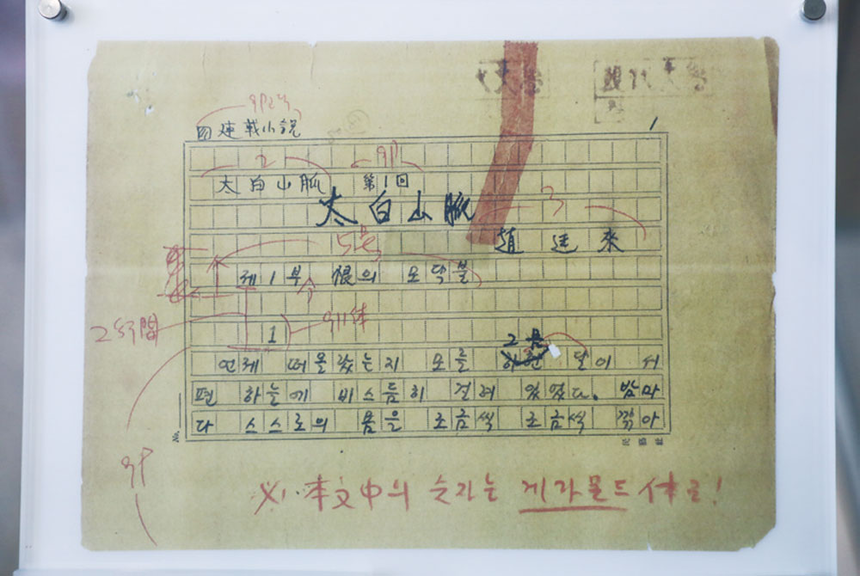 連載小說
1
2
9P
太白山脈 第1回
太白山脈
3
趙廷來
5号
제1부 恨의 모닥불
2行間
1
9P
그믐
언제 떠올랐는지 모를 달이 서
편 하늘에 비스듬히 걸려 있었다. 밤마
다 스스로의 몸을 조금씩 조금씩 깎아
No.
※. 本文中의 숫자는 게라몬드 体로!